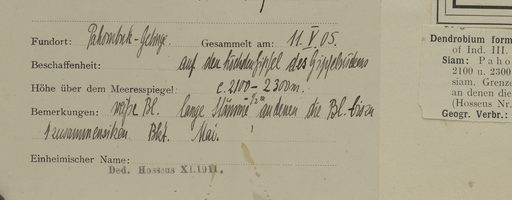 Fundort: Pahombuk-Gebirge. Gesammelt am: 11. V. 05.
Beschaffenheit: auf den höchsten Gipfel des
Höhe über dem Meeresspiegel: c. 2100 - 2300 m.
Bemerkungen: weiße Bl. lange Stämme an denen die Bl. bis zu
zusammensitzen Blzt. Mai.
Einheimischer Name:
Ded. Hosseus XI.1911.
Dendrobium form
of Ind. III.
Siam: Paho
2100 u. 2300
siam. Grenze
an denen die
(Hosseus Nr.
Geogr. Verbr.: